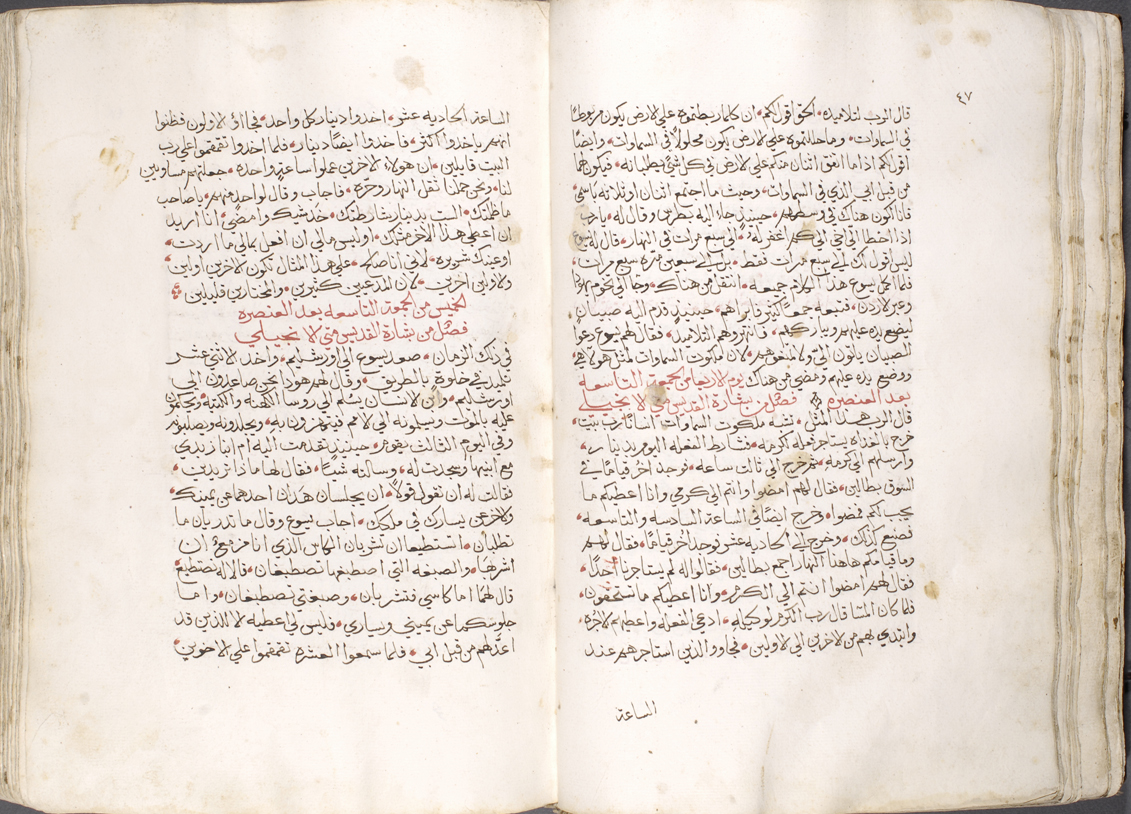 ٤٧
قال الرب لتلاميذه الحق اقول لكم ان كلما ربطتموه علي الارض يكون مربوطًا
في السماوات وما حللتموه علي الارض يكون محلولاً في السماوات وايضًا
اقول لكم اذا ما اتفق اثنان منكم علي الارض في كل شيٍ يطلبانه فيكون لهما
من قبل ابي الذي في السماوات وحيث ما اجتمع اثنان او ثلاثه باسمي
فانا اكون هناك في وسطهم حينيذٍ جاء اليه بطرس وقال له يارب
اذا اخطا الي اخي الي كم اغفر له الي سبع مرات في النهار قال له يسوع
ليس اقول لك الي سبع مرات فقط بل الي سبعين مره سبع مرات
فلما اكمل يسوع هذا الكلام جميعه انتقل من هناك وجا الي تخوم يهودا
وعبر الاردن فتبعه جمعًا كثير فابراهم حينيذٍ قدم اليه صبيان
ليضع يده عليهم ويباركهم فانتهروهم التلاميذ فقال لهم يسوع دعوا
الصبيان ياتون الي ولا تمنعوهم لان ملكوت السماوات لمثل هولاء هي
ووضع يده عليهم ومضي من هناك يوم الاربعا من الجمعه التاسعه
بعد العنصره فصل من بشارة القديس متي الانجيلي
قال الرب هذا المثل تشبه ملكوت السماوات انسانًا رب بيت
خرج بالغداه يستاجر فعله لكرمه فشارط الفعله اليوم بدينار
وارسلهم الي كرمه ثم خرج الي ثالث ساعه فوجد اخر قيامًا في
السوق بطالين فقال لهم امضوا وانتم الي كرمي وانا اعطيكم ما
يجب لكم فمضوا وخرج ايضًا في الساعة السادسه والتاسعه
فصنع كذلك وخرج في الحاديه عشر فوجد اخر قيامًا فقال لهم
وما قيامكم هاهنا النهار اجمع بطالين فقالوا له لم يستاجرنا احدًا
فقال لهم امضوا انتم الي الكرم وانا اعطيكم ما تستحقون
فلما كان المسا قال رب الكرم لوكيله ادعي الفعله واعطيهم الاجره
وابتدي بهم من الاخرين الي الاولين فجاوو الذين استاجرهم عند
الساعة
الساعة الحاديه عشر اخدوا دينار كل واحد فجااؤ الاولون فظنوا
انهم ياخدوا اكثر فاخدوا ايضًا دينار فلما اخدوا تقمقموا علي رب
البيت قايلين ان هولاء الاخرين عملوا ساعةٍ واحده جعلتهم مساويين
لنا ونحن حملنا ثقل النهار وحره فاجاب وقال لواحدٍ منهم ياصاحب
ماظلمتك الست بدينار شارطتك خد شيك وامضي انا اريد
ان اعطي هذا الاخر مثلك اوليس مالي ان افعل بمالي ما اردت
اوعينك شريره لاني انا صالح علي هذا المثال تكون الاخرين اولين
والاولين اخرين لان المدعين كثيرين والمختارين قليلين
الخميس من الجمعه التاسعه بعد العنصره
فصل من بشارة القديس متي الانجيلي
في ذلك الزمان صعد يسوع الي اورشليم واخد الاثني عشر
تلميذ في خلوة بالطريق وقال لهم هودا نحن صاعدون الي
اورشليم وابن الانسان يسلم الي روسا الكهنه والكتبه ويحكمون
عليه بالموت ويسلمونه الي الامم فيتهزون به ويجلدونه ويصلبونه
وفي اليوم الثالث يقوم حينيذٍ تقدمت اليه ام ابنا زبدي
مع ابنيها وسجدت له وسالته شيئًا فقال لها ماذا تريدين
فقالت له ان تقول قولاً ان يجلسان هذان احدهما عن يمينك
والاخر عن يسارك في ملكك اجاب يسوع وقال ما تدريان ما
تطلبان استطيعا ان تشربان الكاس الذي انا مزمع ان
اشربها والصبغه التي اصطبغها تصطبغان قالا له نستطيع
قال لهما اما كاسي فتشربان وصبغتي تصطبغان واما
جلوسكما عن يميني ويساري فليس لي اعطيه الا الذين قد
اعد لهم من قبل ابي فلما سمعوا العشره تقمقموا علي الاخوين